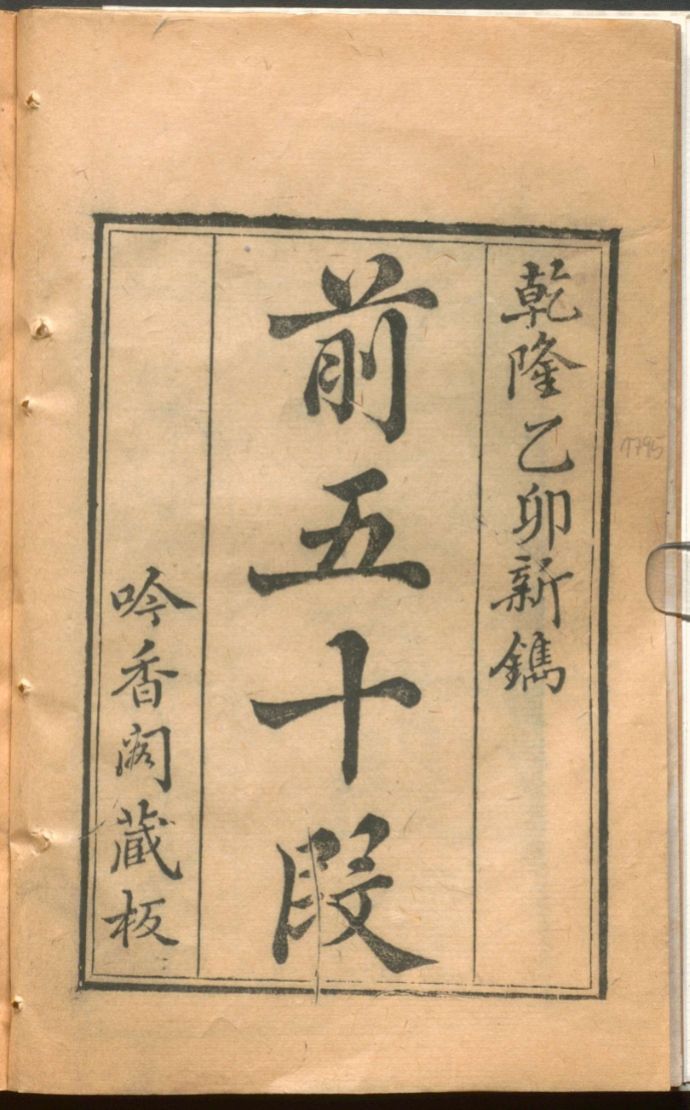 乾隆乙卯新鐫
前五十段
吟香阁藏板
1795